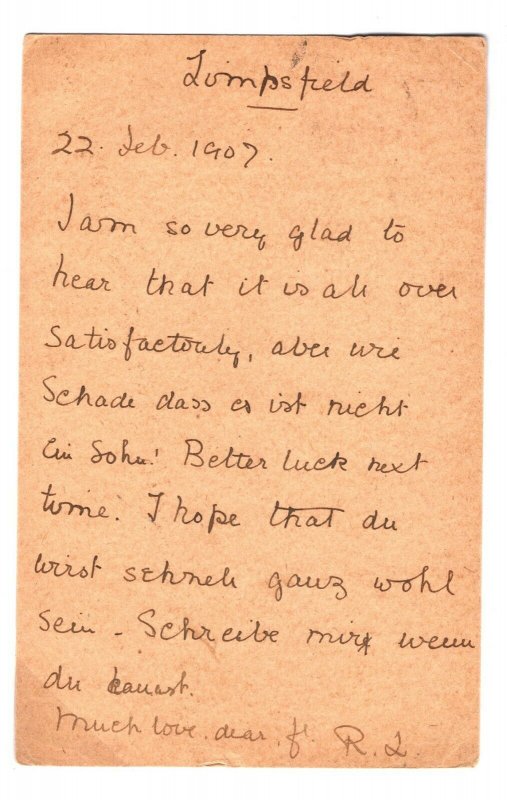 Limpsfield
22. Feb. 1907.
I am so very glad to
hear that it is all over
satisfactorily, aber wie
Schade dass es ist nicht
ein Sohn! Better luck next
time. I hope that du
wirst schnell ganz wohl
sein - Schreibe mir wenn
du kannst.
Much love. dear. f. R. L.